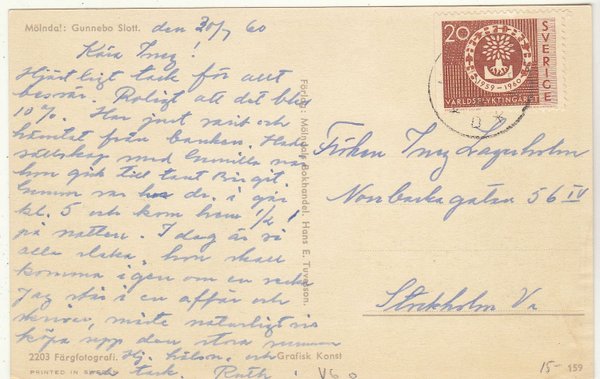 Mölndal: Gunnebo Slott. den 30/7 60
Kära Inez!
Hjärtligt tack för allt
besvär. Roligt att det blev
10%. Har just varit och
hämtat från banken. Hade
sällskap med Gunilla när
hon gick till tant Birgit.
Gumman var hos dr. i går
kl. 5 och kom hem 1/2 1
på natten. I dag är vi
alla slaka, hon skall
komma igen om en vecka
Jag står i en affär och
skriver, måste naturligtvis
köpa upp den stora summan
Hj. hälsn. och
tack. Ruth
2203 Färgfotografi. Grafisk Konst
PRINTED IN SWEDEN
Förlag: Mölndals Bokhandel. Hans E. Tuvesson.
20
SVERIGE
1959-1960
VÄRLDSFLYKTINGÅRET
Fröken Inez Lagerholm
Norrbackagatan 56 IV
Stockholm Va
V60
15-
159